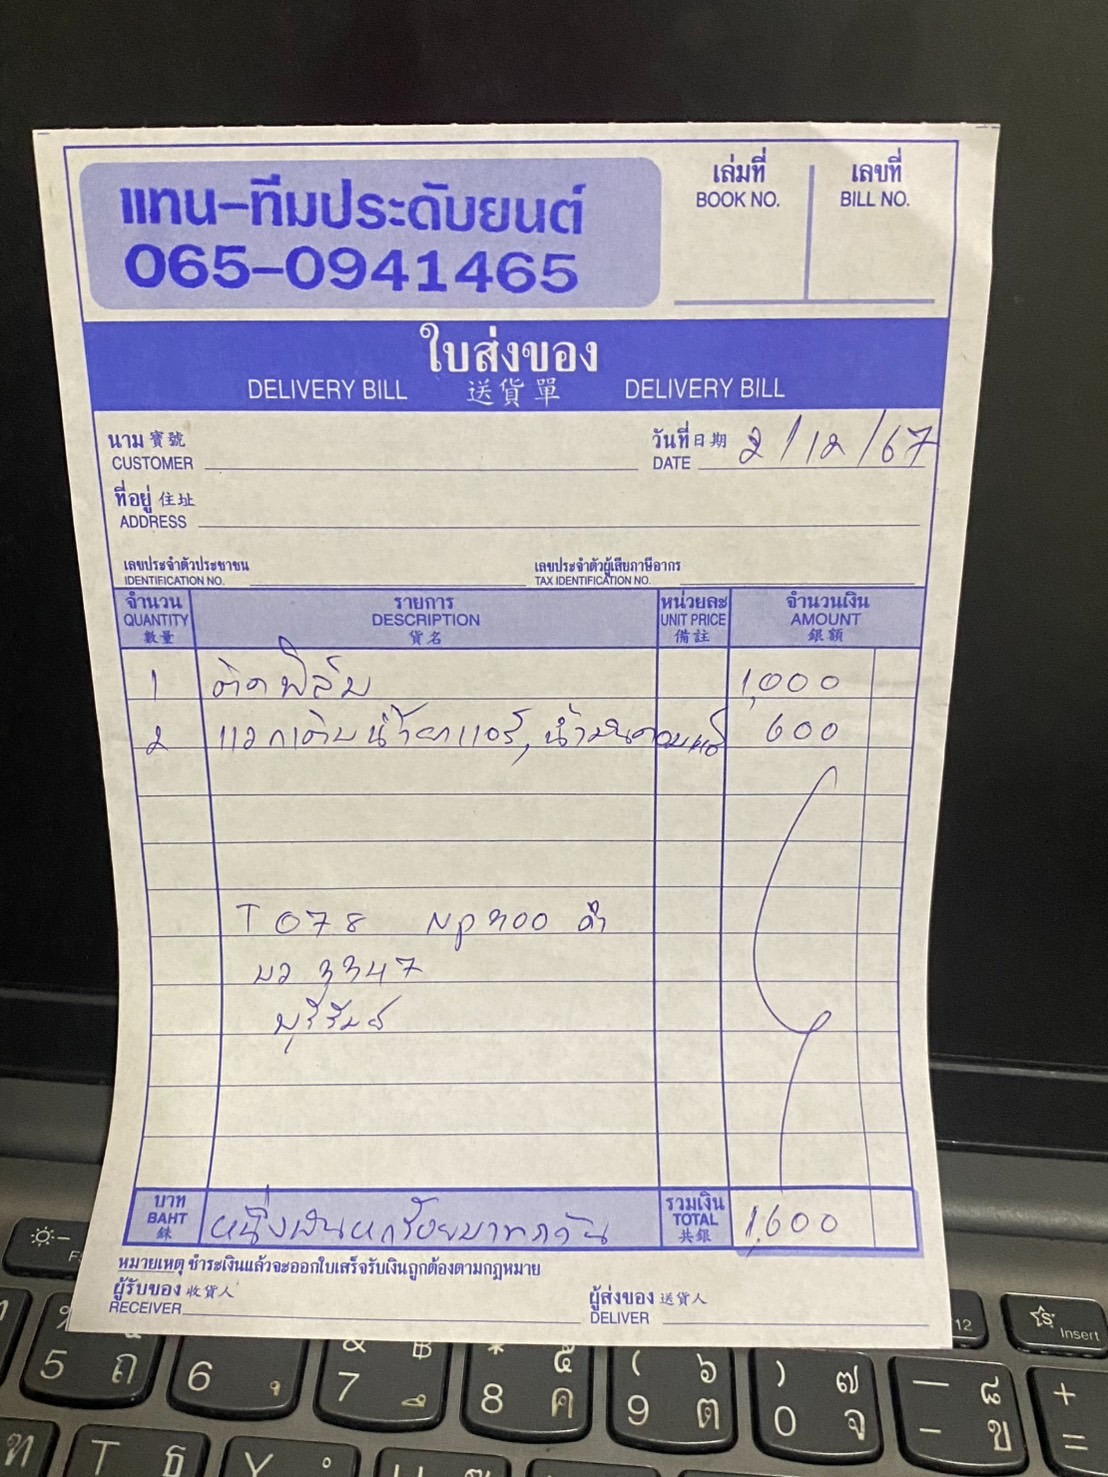 แทน-ทีมประดับยนต์
065-0941465
เล่มที่
BOOK NO.
เลขที่
BILL NO.
ใบส่งของ
DELIVERY BILL 送貨單 DELIVERY BILL
นาม 寶號
CUSTOMER
วันที่ 日期 2/12/67
DATE
ที่อยู่ 住址
ADDRESS
เลขประจำตัวประชาชน
IDENTIFICATION NO.
เลขประจำตัวผู้เสียภาษีอากร
TAX IDENTIFICATION NO.
จำนวน รายการ หน่วยละ จำนวนเงิน
QUANTITY DESCRIPTION UNIT PRICE AMOUNT
數量 貨名 備註 銀額
1 ติดฟิล์ม 1,000
2 แวคเติมน้ำยาแอร์, น้ำมันคอมแอร์ 600
T078 NP300 ดำ
บว 3347
บุรีรัมย์
บาท
BAHT
銖
หนึ่งพันหกร้อยบาทถ้วน
รวมเงิน
TOTAL
共銀
1,600
หมายเหตุ ชำระเงินแล้วจะออกใบเสร็จรับเงินถูกต้องตามกฎหมาย
ผู้รับของ 收貨人
RECEIVER
ผู้ส่งของ 送貨人
DELIVER
12
Insert
5 ถ
6 ุ
7 ึ
8 ค
9 ต
0 จ
- ข
+ =
T ธ
Y